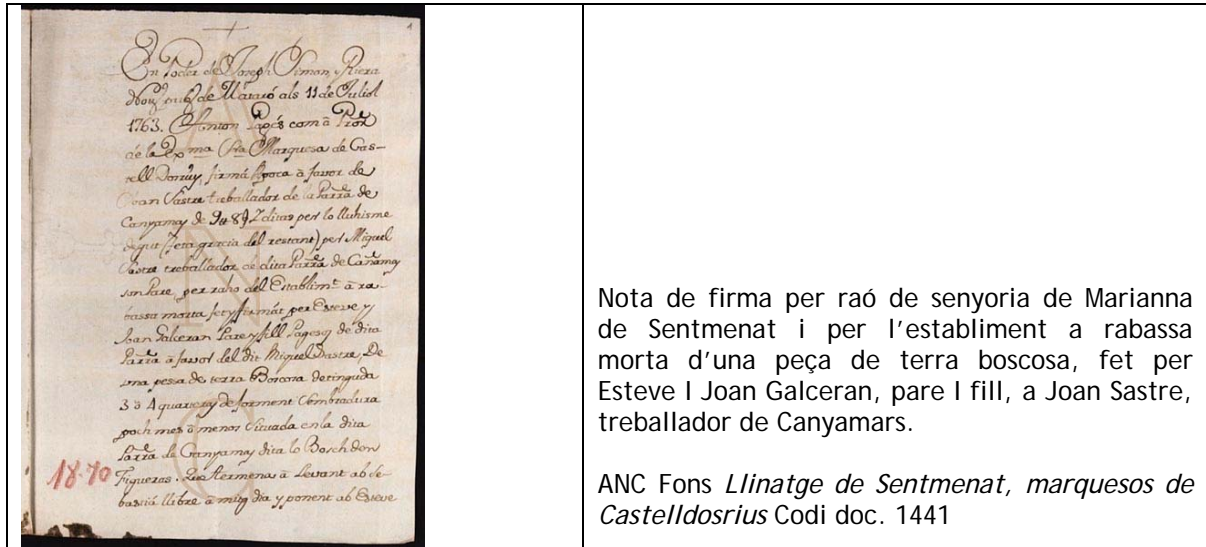 1
En Poder de Joseph Simon y Riera
Noty. pub. de Mataró als 11 de Juliol
1763. Anton Pagés com à Pror.
de la Exma. Sra. Marquesa de Cas-
tell Dosriuy, firmá Apoca à favor de
Joan Sastre treballador de la Parra. de
Canyamay de 9 ditas per lo lluhisme
degut (feta gracia del restant) per Miquel
Sastre treballador de dita Parra. de Cañamay
son Pare, per raho del Establimt. à ra-
bassa morta fet y firmát per Esteve y
Joan Galceran Pare y fill Pagesos de dita
Parra. à favor del dit Miquel Sastre, De
una pessa de terra Boscosa de tinguda
3 ò 4 quarteras de forment Sembradura
poch mes ò menos Situada en la dita
Parra. de Canyamay dita lo Bosch den
Figueras. Que Termena à Levant ab Se-
bastiá Llibre à mitg dia y ponent ab Esteve
18.70
Nota de firma per raó de senyoria de Marianna
de Sentmenat i per l'establiment a rabassa
morta d'una peça de terra boscosa, fet per
Esteve I Joan Galceran, pare I fill, a Joan Sastre,
treballador de Canyamars.
ANC Fons Llinatge de Sentmenat, marquesos de
Castelldosrius Codi doc. 1441